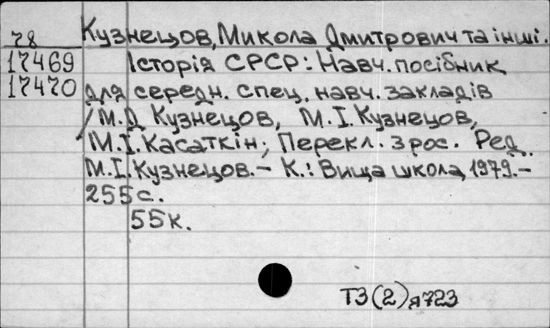 78 Кузнецов, Микола Дмитрович та інші.
17469 Історія СРСР: Навч. посібник
17470 для середн. спец. навч. закладів
/М.Д. Кузнецов, М.І. Кузнецов,
М.І. Касаткін; Перекл. з рос. Ред.
М.І. Кузнецов.- К.: Вища школа, 1979.-
255с.
55к.
Т3(2)я723